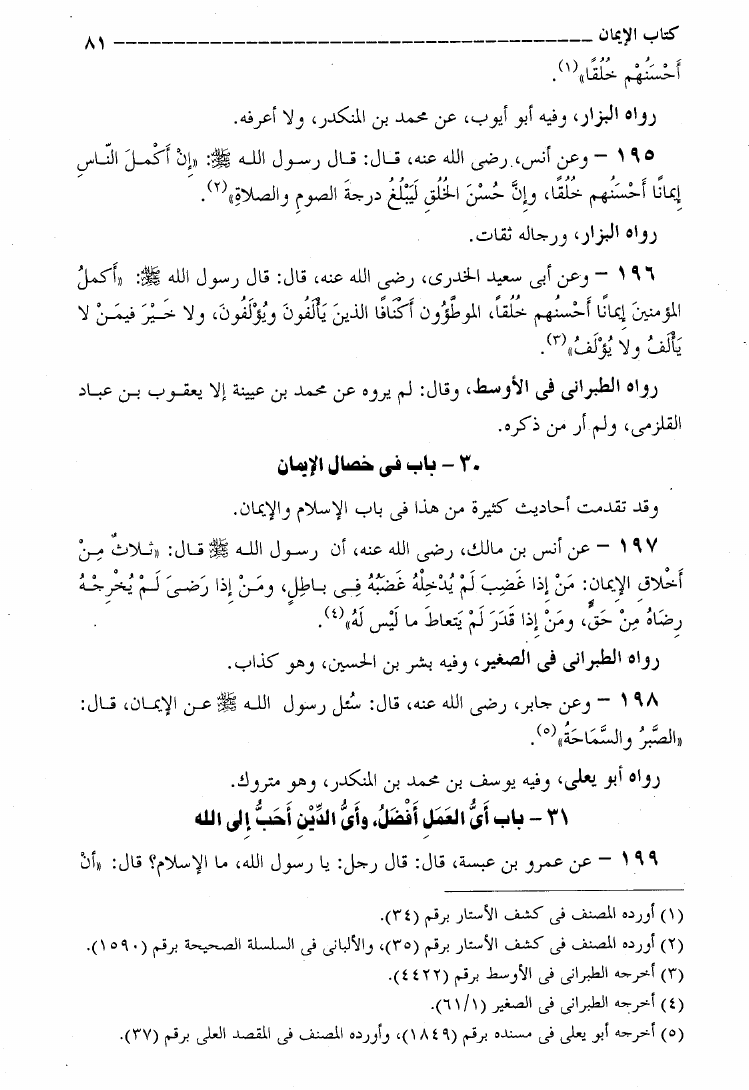 كتاب الإيمان ــــــــــــــــــــــــــــــــــــــــ ٨١
أَحْسَنُهُم خُلُقًا»(١).
رواه البزار، وفيه أبو أيوب، عن محمد بن المنكدر، ولا أعرفه.
١٩٥ – وعن أنس، رضى الله عنه، قال: قال رسول الله ﷺ: «إِنَّ أَكْملَ النَّاسِ
إيمانًا أَحْسَنُهم خلُقًا، وإِنَّ حُسْنَ الخُلُقِ لَيَبْلُغُ درجةَ الصومِ والصلاةِ»(٢).
رواه البزار، ورجاله ثقات.
١٩٦ – وعن أبى سعيد الخدرى، رضى الله عنه، قال: قال رسول الله ﷺ: «أَكملُ
المؤمنينَ إيمانًا أَحْسنُهم خُلُقاً، الموطَّؤُون أَكْنَافًا الذينَ يَأْلَفُونَ ويُؤْلَفُونَ، ولا خَيْرَ فيمَنْ لا
يَأْلَفُ ولا يُؤْلَفُ»(٣).
رواه الطبرانى فى الأوسط، وقال: لم يروه عن محمد بن عيينة إلا يعقوب بن عباد
القلزمى، ولم أر من ذكره.
٣٠ – باب فى خصال الإيمان
وقد تقدمت أحاديث كثيرة من هذا فى باب الإسلام والإيمان.
١٩٧ – عن أنس بن مالك، رضى الله عنه، أن رسول الله ﷺ قال: «ثلاثٌ مِنْ
أَخْلاقِ الإيمانِ: مَنْ إذا غَضِبَ لَمْ يُدْخِلْهُ غَضَبُهُ فِى باطِلٍ، ومَنْ إذا رَضىَ لَمْ يُخْرِجْهُ
رِضَاهُ مِنْ حَقٍّ، ومَنْ إذا قَدَرَ لَمْ يَتعاطَ ما لَيْس لَهُ»(٤).
رواه الطبرانى فى الصغير، وفيه بشر بن الحسين، وهو كذاب.
١٩٨ – وعن جابر، رضى الله عنه، قال: سُئل رسول الله ﷺ عن الإيمان، قال:
«الصَّبْرُ والسَّمَاحَةُ»(٥).
رواه أبو يعلى، وفيه يوسف بن محمد بن المنكدر، وهو متروك.
٣١ – باب أَىُّ العَمَلِ أَفْضَلُ، وأَىُّ الدِّيْنِ أَحَبُّ إلى الله
١٩٩ – عن عمرو بن عبسة، قال: قال رجل: يا رسول الله، ما الإسلام؟ قال: «أنْ
(١) أورده المصنف فى كشف الأستار برقم (٣٤).
(٢) أورده المصنف فى كشف الأستار برقم (٣٥)، والألبانى فى السلسلة الصحيحة برقم (١٥٩٠).
(٣) أخرجه الطبرانى فى الأوسط برقم (٤٤٢٢).
(٤) أخرجه الطبرانى فى الصغير (٦١/١).
(٥) أخرجه أبو يعلى فى مسنده برقم (١٨٤٩)، وأورده المصنف فى المقصد العلى برقم (٣٧).